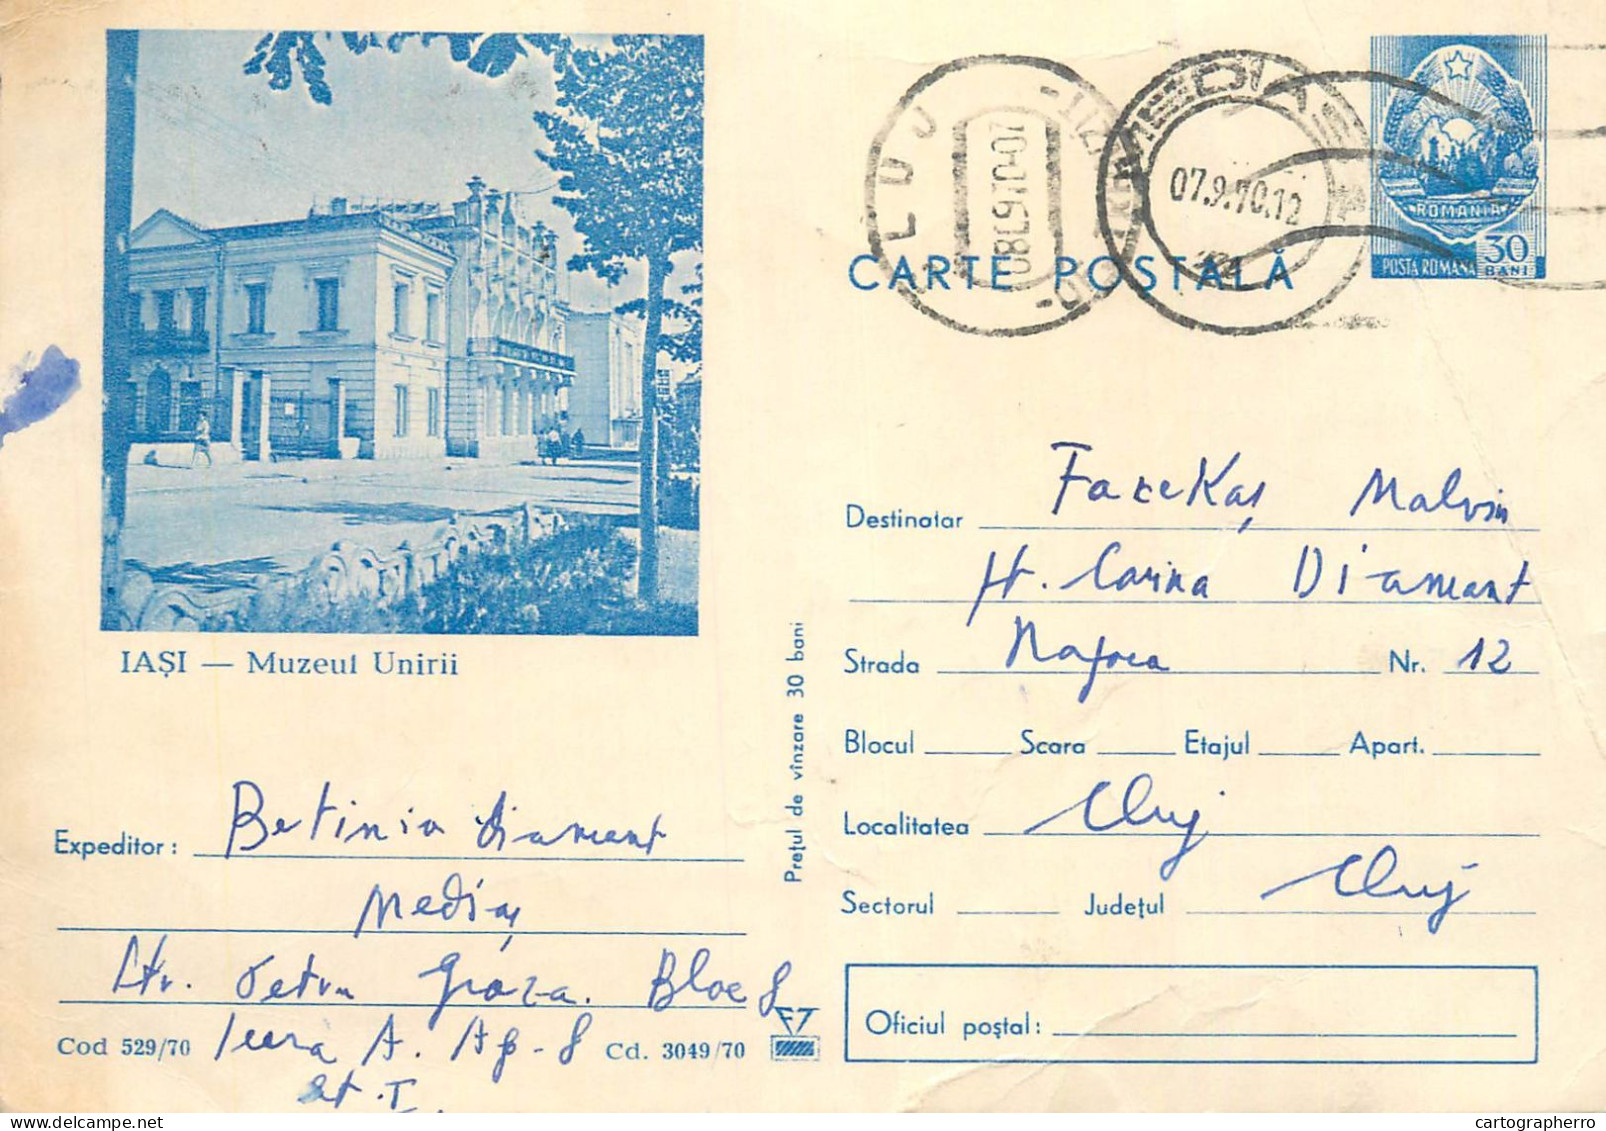 CLUJ
MEDIAȘ
07.9.70.12
ROMANIA
POSTA ROMANA
30
BANI
CARTE POSTALĂ
IAȘI — Muzeul Unirii
Prețul de vînzare 30 bani
Destinatar Fazekaș Malvin
pt. Carina Diamant
Strada Nr. 12
Blocul Scara Etajul Apart.
Localitatea Cluj
Sectorul Județul Cluj
Oficiul poștal:
Expeditor: Betinia Diamant
Mediaș
Str. Petru Groza. Bloc 8
Scara A. Ap-8
et. I
Cod 529/70 Cd. 3049/70
cartographerro